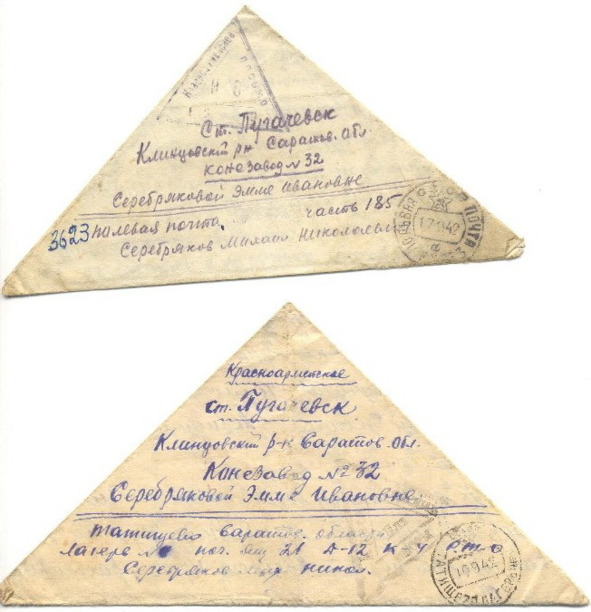 Красноармейское
письмо
Ст. Пугачевск
Клинцовский р-н Саратов. обл.
Конезавод N 32
Серебряковой Эмме Ивановне
3623 полевая почта часть 185
Серебряков Михаил Николаевич
ПОЛЕВАЯ ПОЧТА
Красноармейское
ст. Пугачевск
Клинцовский р-к Саратов. обл.
Конезавод № 32
Серебряковой Эмме Ивановне
Татищево Саратов. области
Лагерь № поч. ящ 21 Д-12 К-4
Серебряков Мих Никол.